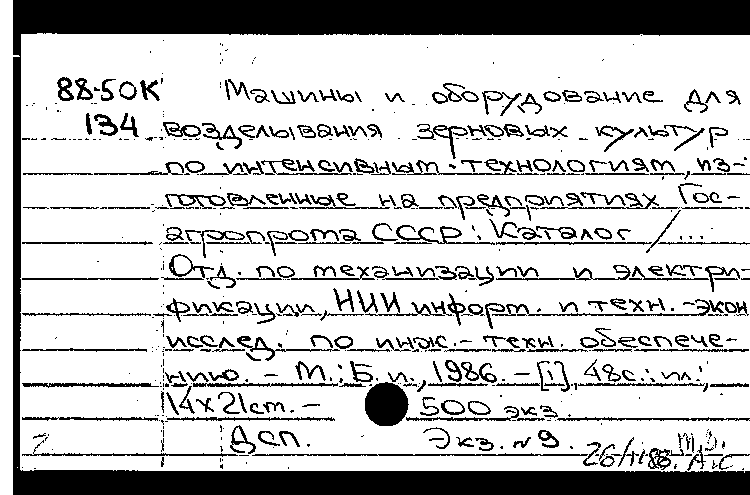 88-50К Машины и оборудование для
134 возделывания зерновых культур
по интенсивным технологиям, из-
готовленные на предприятиях Гос-
агропрома СССР: Каталог / ...
Отд. по механизации и электри-
фикации, НИИ информ. и техн.-экон
исслед. по инж.-техн. обеспече-
нию. - М.: Б.и., 1986. - [1], 48с.: ил.;
14x21cm. - 500 экз.
ДСП. Экз. №9.